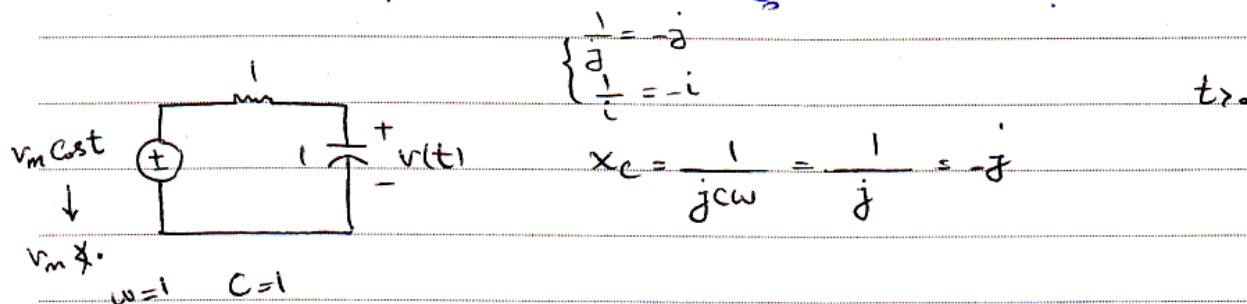 { 1/j = -j
1/i = -i
t>0
1
v_m Cos t
+
1
v(t)
-
x_C = 1/(jcω) = 1/j = -j
↓
v_m ∡0
ω=1 C=1